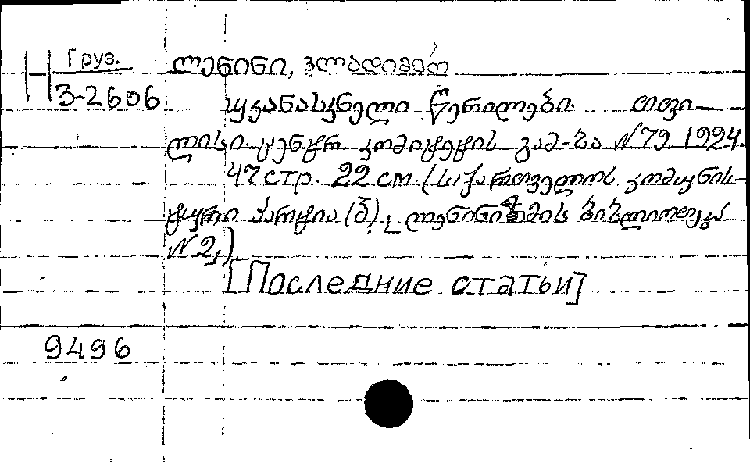 Груз. ლენინი, ვლადიმერ
3-2606 უკანასკნელი წერილები თფი-
ლისი ცენტრ კომიტეტის გამ-ბა №79 1924.
47 стр. 22 см. (საქართველოს კომუნის-
ტური პარტია (ბ), ლენინიზმის ბიბლიოთეკა
№2,)
[Последние статьи]
9496